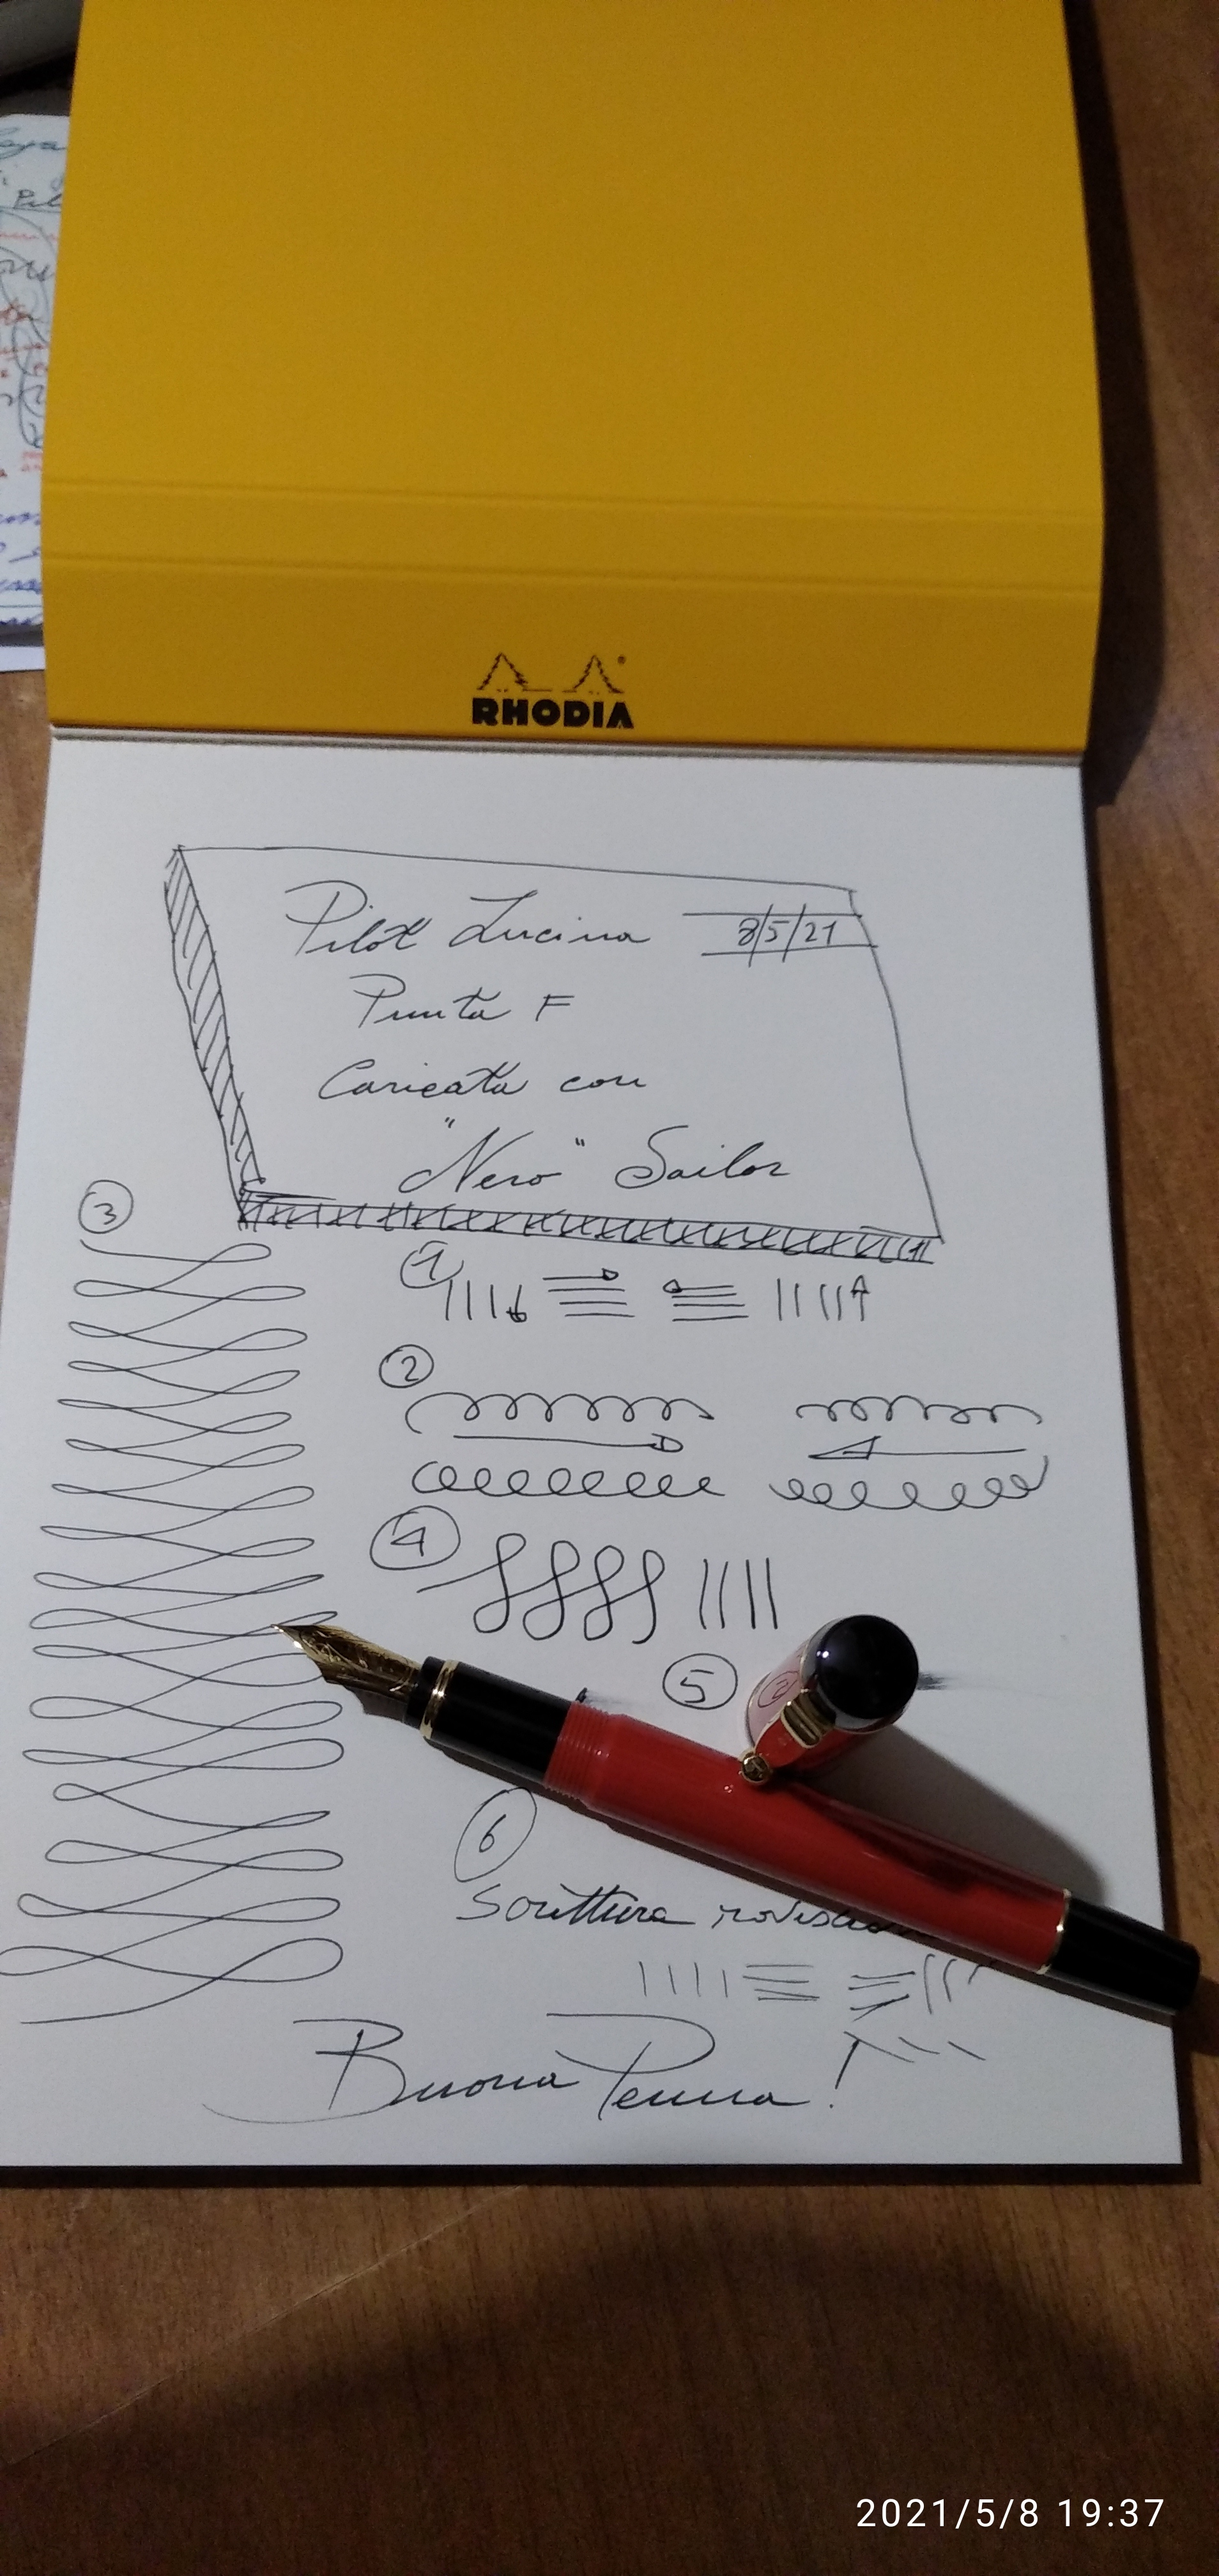 RHODIA
Pilot Lucina 8/5/21
Punta F
Caricata con
"Nero" Sailor
3
1
2
4
5
6
Scrittura
Buona Penna!
2021/5/8 19:37